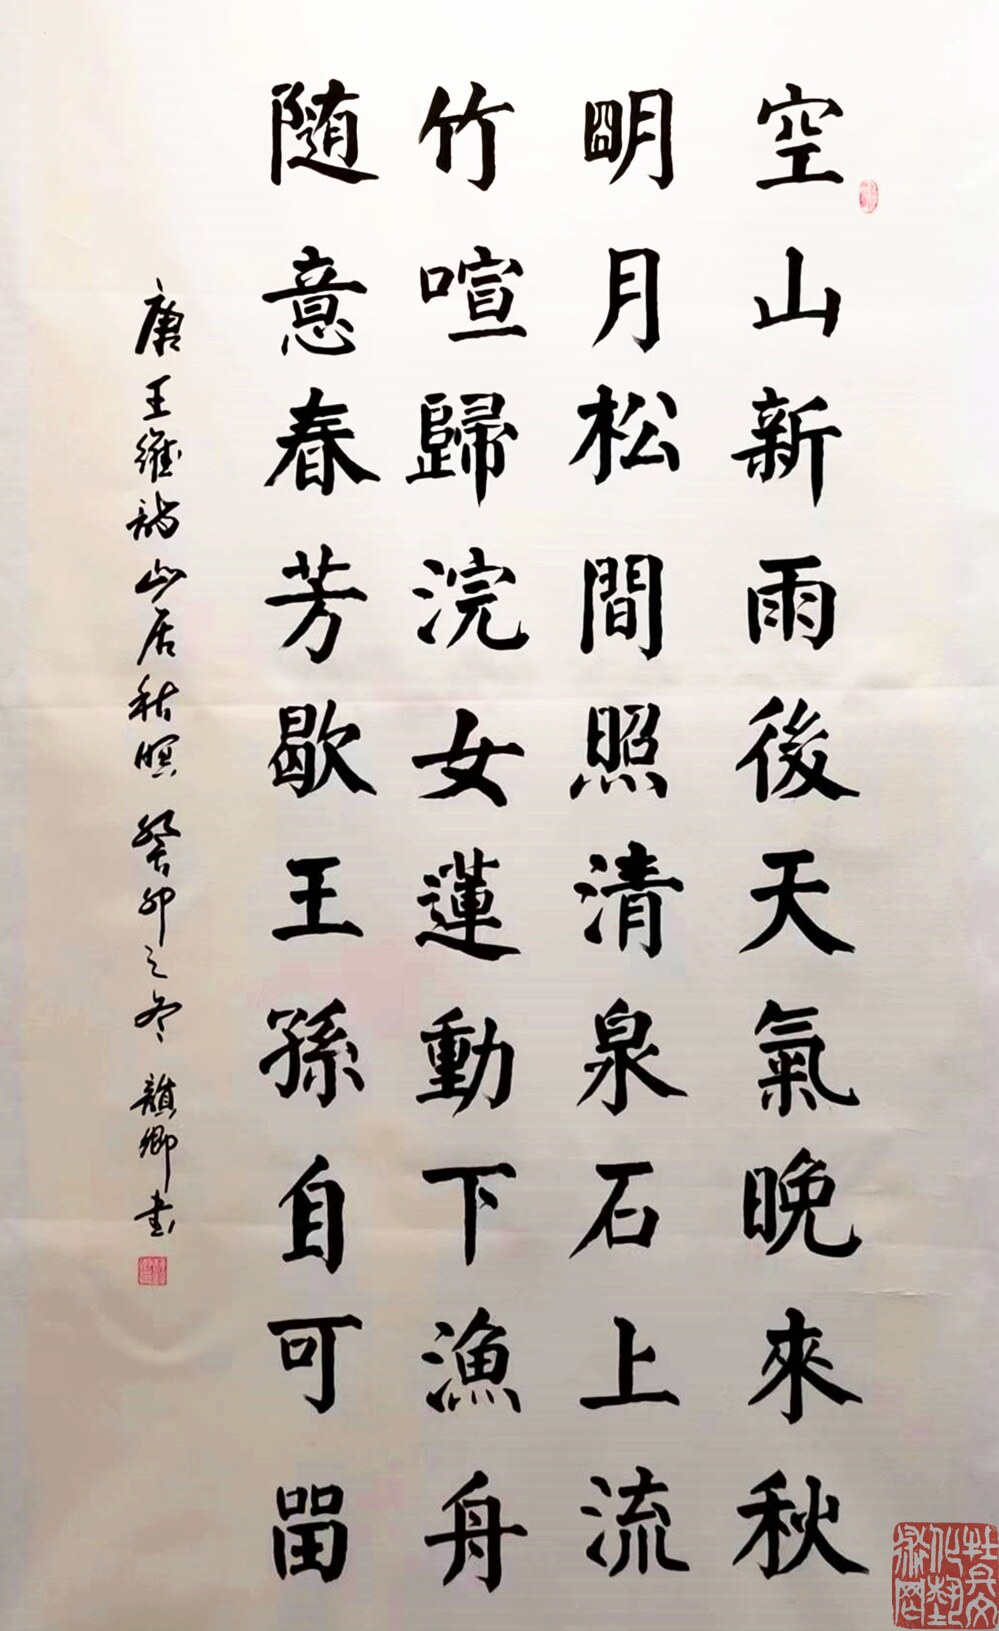 空山新雨後天氣晚來秋
明月松間照清泉石上流
竹喧歸浣女蓮動下漁舟
随意春芳歇王孫自可留
唐王維詩山居秋暝癸卯之冬 卿書